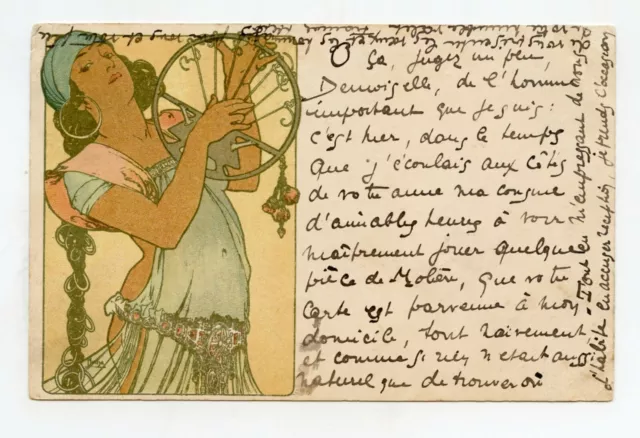 O
Ça, jugez un peu,
Demoiselle, de l'homme
important que je suis :
c'est hier, dans le temps
que j'écoulais aux côtés
de votre amie ma cousine
d'aimables heures à voir
maîtrement jouer quelque
pièce de Molière, que votre
carte est parvenue à mon
domicile, tout naïvement
et comme si rien n'était aussi
naturel que de trouver où
Tout en m'empressant de vous
en accuser réception, je prends l'occasion
vous présenter les